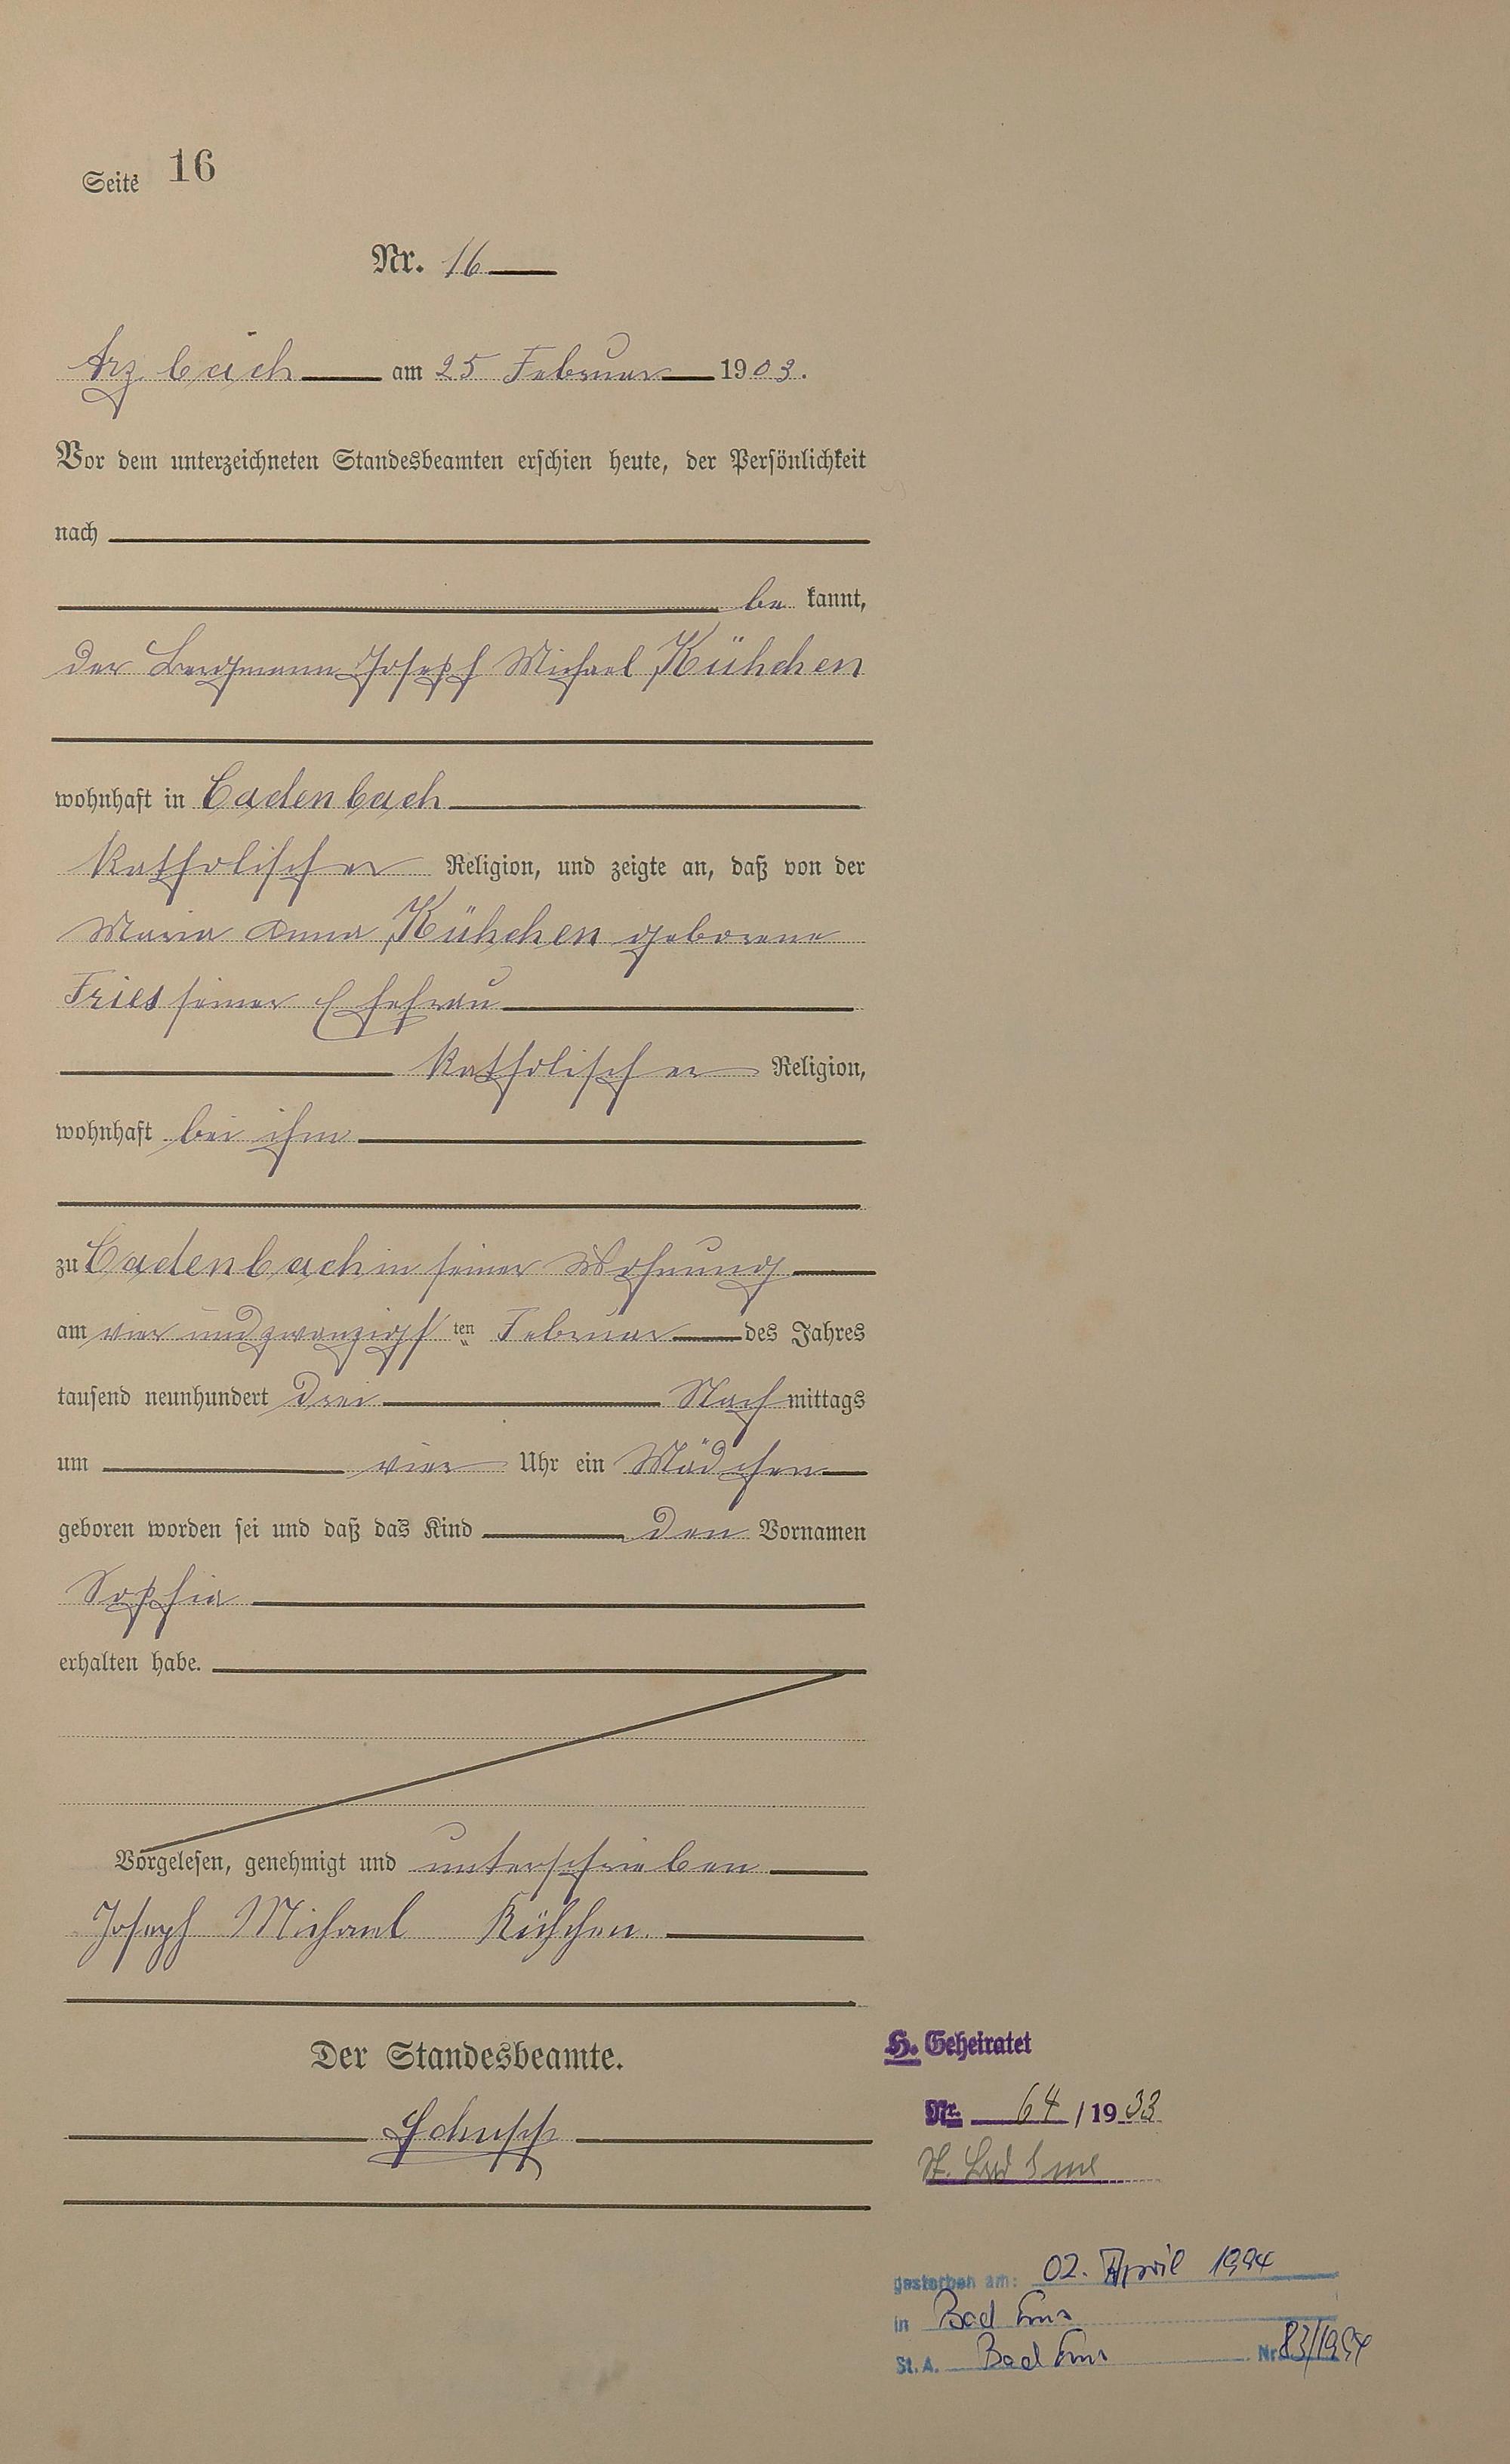 Seite 16
Nr. 16
Arzbach am 25 Februar 1903.
Vor dem unterzeichneten Standesbeamten erschien heute, der Persönlichkeit
nach
be kannt,
der Bergmann Joseph Michael Kühchen
wohnhaft in Cadenbach
katholischer Religion, und zeigte an, daß von der
Maria Anna Kühchen geborene
Fries seiner Ehefrau
katholischer Religion,
wohnhaft bei ihm
zu Cadenbach in seiner Wohnung
am vier und zwanzigsten Februar des Jahres
tausend neunhundert drei Nachmittags
um vier Uhr ein Mädchen
geboren worden sei und daß das Kind den Vornamen
Sophia
erhalten habe.
Vorgelesen, genehmigt und unterschrieben
Joseph Michael Kühchen.
Der Standesbeamte.
Schupp
H. Geheiratet
Nr. 64 / 1933
St. Bad Ems
gestorben am: 02. April 1994
in Bad Ems
St. A. Bad Ems Nr. 83/1994